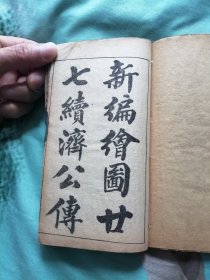 新編繪圖廿
七續濟公傳